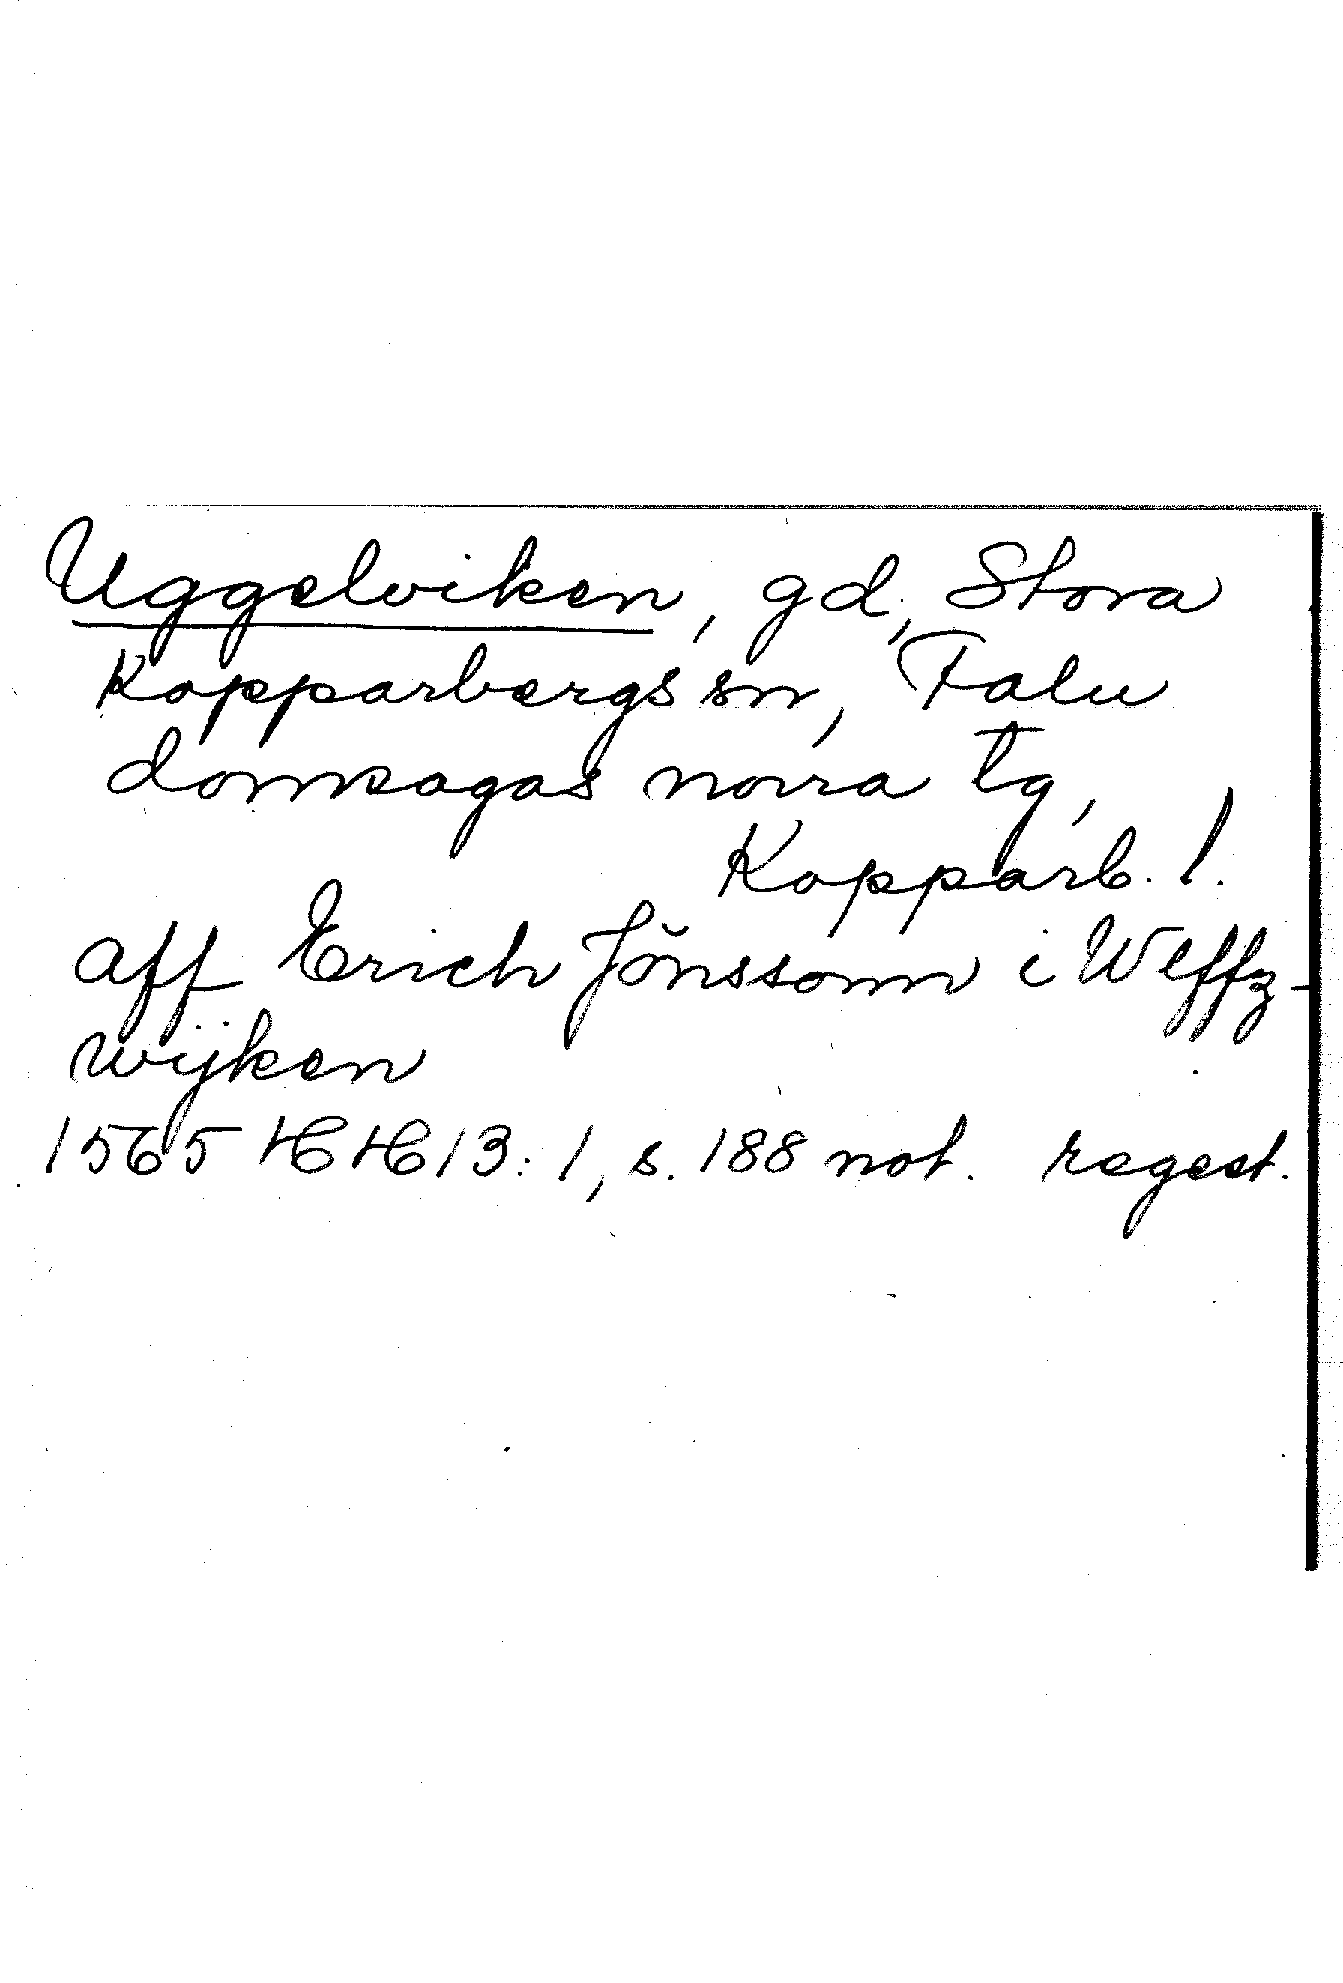 Uggelviken, gd, Stora
Kopparbergs sn, Falu
domsagas norra tg,
Kopparb. l.
aff Erich Jönssonn i Wlffz-
wijken
1565 HH 13:1, s. 188 not. regest.